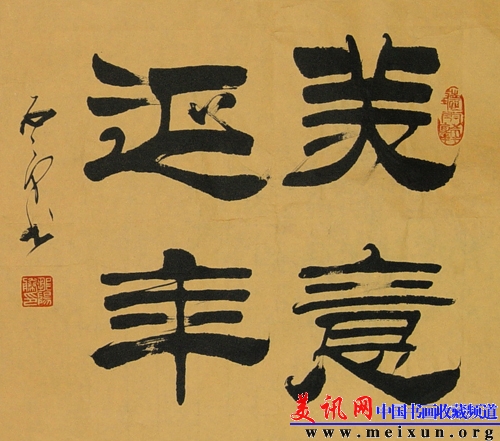 美意
延年
美讯网 中国书画收藏频道
www.meixun.org